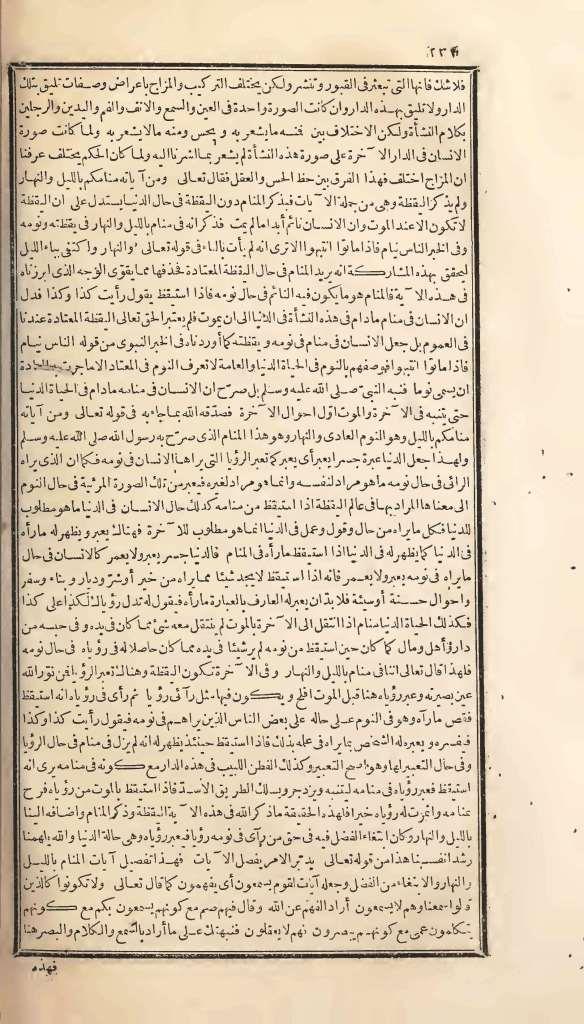 ٢٣٤
فلا شك فانها التى تبعثر فى القبور وتنشر ولكن يختلف التركيب والمزاج باعراض وصفات تليق بتلك
الدار ولا تليق بهذه الدار وان كانت الصورة واحدة فى العين والسمع والانف والفم واليدين والرجلين
بكلام النشأة ولكن الاختلاف بين فمنه ما يشعر به ويحس ومنه ما لا يشعر به ولما كانت صورة
الانسان فى الدار الآخرة على صورة هذه النشأة لم يشعر بما اشرنا اليه ولما كان الحكم يختلف عرفنا
ان المزاج اختلف فهذا الفرق بين حظ الحس والعقل فقال تعالى ومن آياته منامكم بالليل والنهار
ولم يذكر اليقظة وهى من جملة الآيات فذكر المنام دون اليقظة فى حال الدنيا فدل على ان اليقظة
لا تكون الا عند الموت وان الانسان نائم أبدا ما لم يمت فذكر انه فى منام بالليل والنهار فى يقظته ونومه
وفى الخبر الناس نيام فاذا ماتوا انتبهوا الا ترى انه لم يأت بالباء فى قوله تعالى والنهار واكتفى بباء الليل
ليحقق بهذه المشاركة انه يريد المنام فى حال اليقظة المعتادة فحذفها مما يقوى الوجه الذى ابرزناه
فى هذه الآية فالمنام هو ما يكون فيه النائم فى حال نومه فاذا استيقظ يقول رأيت كذا وكذا فدل
ان الانسان فى منام مادام فى هذه النشأة فى الدنيا الى ان يموت فلم يعتبر الحق تعالى اليقظة المعتادة عندنا
فى العموم بل جعل الانسان فى منام فى نومه ويقظته كما أوردناه فى الخبر النبوى من قوله الناس نيام
فاذا ماتوا انتبهوا فوصفهم بالنوم فى الحياة الدنيا والعامة لا تعرف النوم فى المعتاد الا ما جرت به العادة
ان يسمى نوما فنبه النبىّ صلى الله عليه وسلم بل صرّح ان الانسان فى منامه مادام فى الحياة الدنيا
حتى ينتبه فى الآخرة والموت اوّل احوال الآخرة فصدّقه الله بما جاء به فى قوله تعالى ومن آياته
منامكم بالليل وهو النوم العادى والنهار وهو هذا المنام الذى صرّح به رسول الله صلى الله عليه وسلم
ولهذا جعل الدنيا عبرة جسرا يعبر أى يعبر كما تعبر الرؤيا التى يراها الانسان فى نومه فكما ان الذى يراه
الرائى فى حال نومه ما هو مراد لنفسه وانما هو مراد لغيره فيعبر من تلك الصورة المرئية فى حال النوم
الى معناها المراد بها فى عالم اليقظة اذا استيقظ من منامه كذلك حال الانسان فى الدنيا ما هو مطلوب
للدنيا فكل ما يراه من حال وقول وعمل فى الدنيا انما هو مطلوب للآخرة فهنالك يعبر ويظهر له ما رآه
فى الدنيا كما يظهر له فى الدنيا اذا استيقظ ما رآه فى المنام فالدنيا جسر يعبر ولا يعمر كالانسان فى حال
ما يراه فى نومه يعبر ولا يعمر فانه اذا استيقظ لا يجد شيئا مما يراه من خير أو شرّ وديار وبناء وسفر
واحوال حسنة أو سيئة فلا بدّ ان يعبر له العارف بالعبارة ما رآه فيقول له تدل رؤياك لكذا على كذا
فكذلك الحياة الدنيا منام اذا انتقل الى الآخرة بالموت لم ينتقل معه شئ مما كان فى يده وفى حبسه من
دار وأهل ومال كما كان حين استيقظ من نومه لم ير شيئا فى يده مما كان حاصلا له فى رؤياه فى حال نومه
فلهذا قال تعالى اننا فى منام بالليل والنهار وفى الآخرة تكون اليقظة وهنالك تعبر الرؤيا فمن نوّر الله
عين بصيرته وعبر رؤياه هنا قبل الموت افلح ويكون فيها مثل رآئى رؤيا ثم رأى فى رؤياه انه استيقظ
فقص ما رآه وهو فى النوم على حاله على بعض الناس الذين يراهم فى نومه فيقول رأيت كذا وكذا
فيفسره ويعبره له الشخص بما يراه فى علمه بذلك فاذا استيقظ حينئذ يظهر له انه لم يزل فى منام فى حال الرؤيا
وفى حال التعبير لها وهو اصح التعبير وكذلك الفطن اللبيب فى هذه الدار مع كونه فى منامه يرى انه
استيقظ فعبر رؤياه فى منامه لينتبه ويزدجر ويسلك الطريق الاسدّ فاذا استيقظ بالموت من رؤياه فرح
بمنامه واثمرت له رؤياه خيرا فلهذه الحقيقة ما ذكر الله فى هذه الآية اليقظة وذكر المنام واضافه الينا
بالليل والنهار وكان ابتغاء الفضل فيه فى حق من رأى فى نومه رؤيا فيعبر رؤياه وهى حالة الدنيا والله يلهمنا
رشد انفسنا هذا من قوله تعالى يدبر الامر يفصل الآيات فهذا تفصيل آيات المنام بالليل
والنهار والابتغاء من الفضل وجعله آيات لقوم يسمعون أى يفهمون كما قال تعالى ولا تكونوا كالذين
قالوا سمعنا وهم لا يسمعون أراد الفهم عن الله وقال فيهم صم مع كونهم يسمعون بكم مع كونهم
يتكلمون عمى مع كونهم يبصرون فهم لا يعقلون فنبهتك على ما أراد بالسمع والكلام والبصر هنا
فهذه